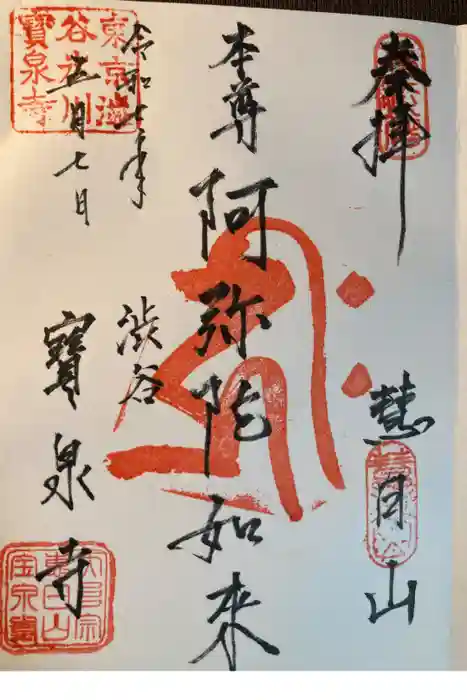 奉拝
慧日山
本尊
阿弥陀如来
令和七年
五月七日
渋谷
寶泉寺
東京澁
谷氷川
寶泉寺